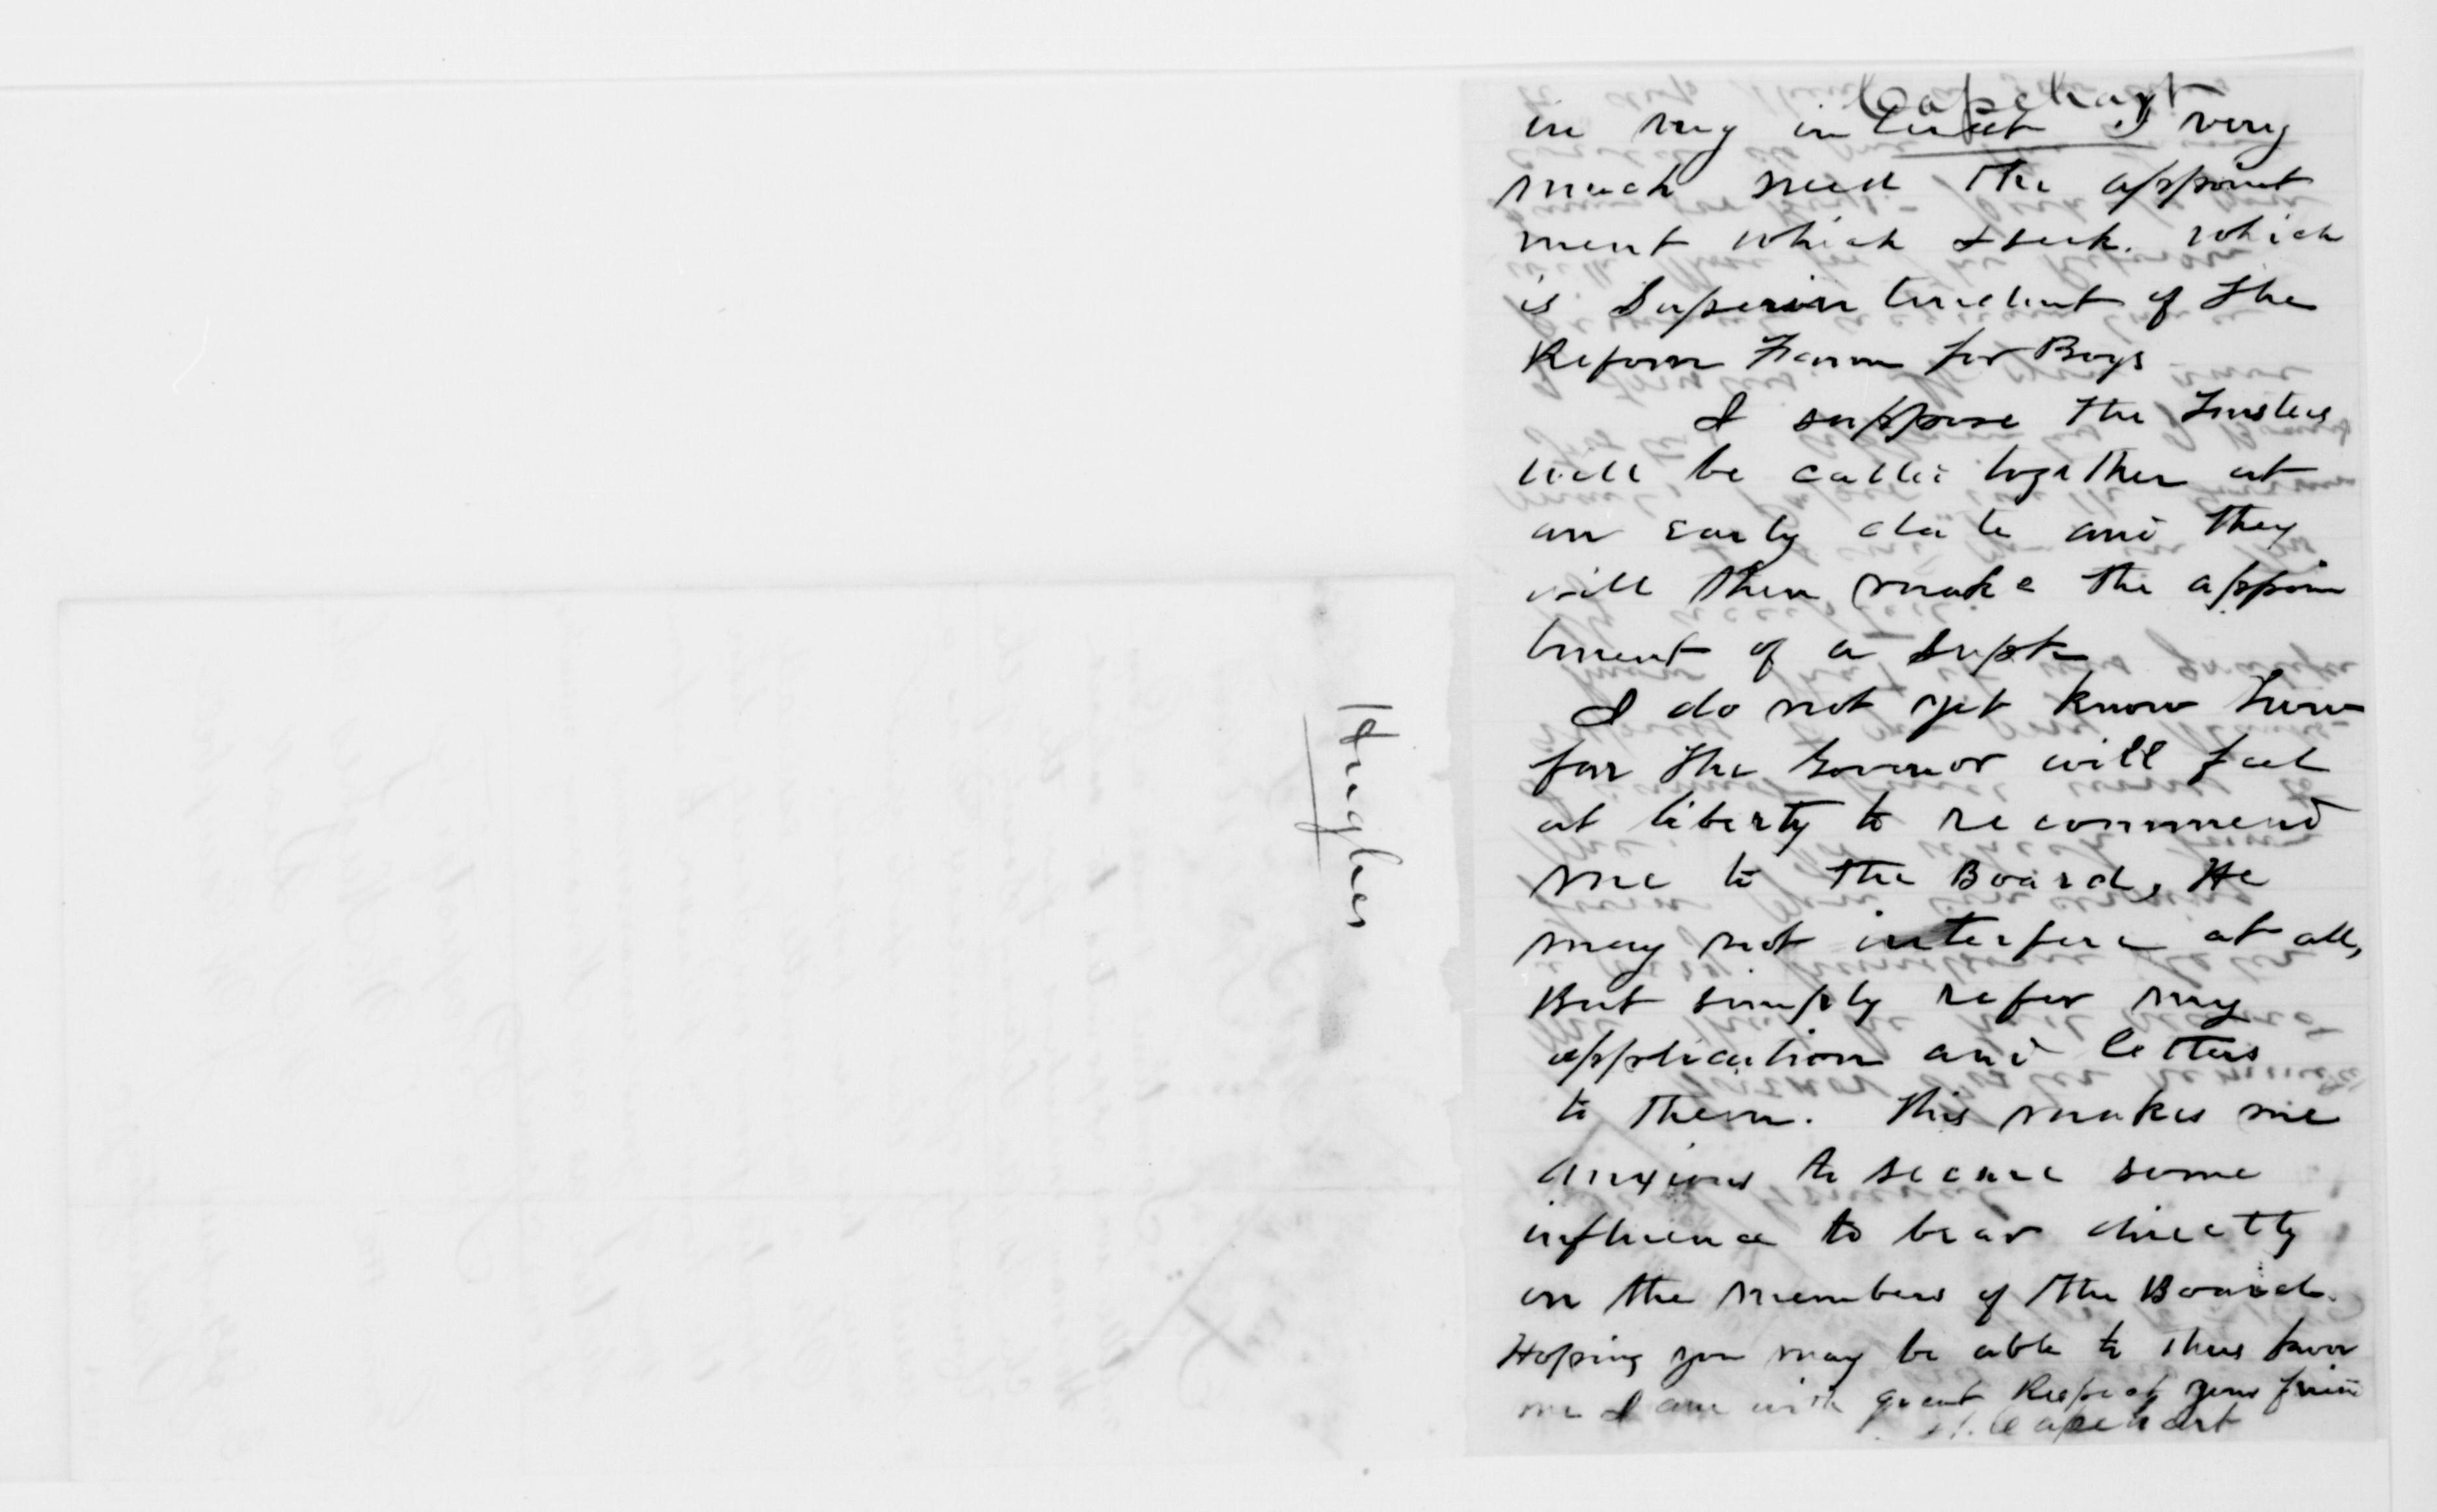 Hughes
Capehart
in my interest I very
much need the appoint
ment which I seek. which
is Superintendent of the
Reform Farm for Boys
I suppose the Trustees
will be called together at
an early date and they
will then make the appoin
tment of a Supt
I do not yet know how
far the Governor will feel
at liberty to recommend
me to the Board, He
may not interfere at all,
But simply refer my
application and letters
to them. This makes me
anxious to secure some
influence to bear directly
on the members of the Board.
Hoping you may be able to thus favor
me I am with great Respect your friend
H. Capehart